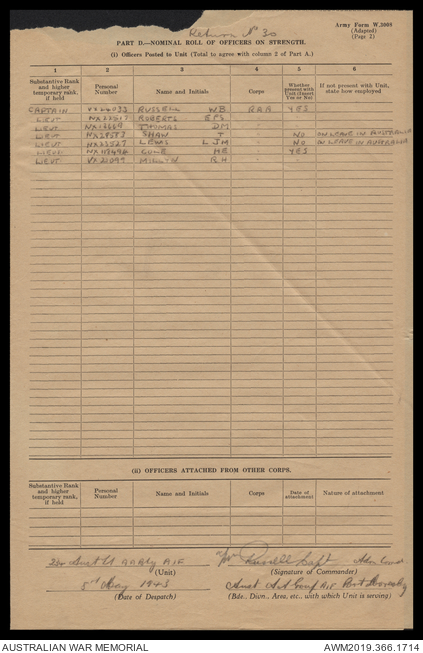 Return No 30
Army Form W.3008
(Adapted)
(Page 2)
PART D.—NOMINAL ROLL OF OFFICERS ON STRENGTH.
(i) Officers Posted to Unit (Total to agree with column 2 of Part A.)
1 2 3 4 5 6
Substantive Rank and higher temporary rank, if held
Personal Number
Name and Initials
Corps
Whether present with Unit (Insert Yes or No)
If not present with Unit, state how employed
CAPTAIN RUSSELL WB RAA YES
LIEUT ROBERTS
LIEUT THOMAS DM
LIEUT SHAW T NO ON LEAVE IN AUSTRALIA
LIEUT LEWIS L JM NO ON LEAVE IN AUSTRALIA
LIEUT HE YES
LIEUT RH
(ii) OFFICERS ATTACHED FROM OTHER CORPS.
Substantive Rank and higher temporary rank, if held
Personal Number
Name and Initials
Corps
Date of attachment
Nature of attachment
Aust AIF
(Unit)
Russell Capt
(Signature of Commander)
8th May 1943
(Date of Despatch)
Aust AIF Port Moresby
(Bde., Divn., Area, etc., with which Unit is serving)
AUSTRALIAN WAR MEMORIAL
AWM2019.366.1714